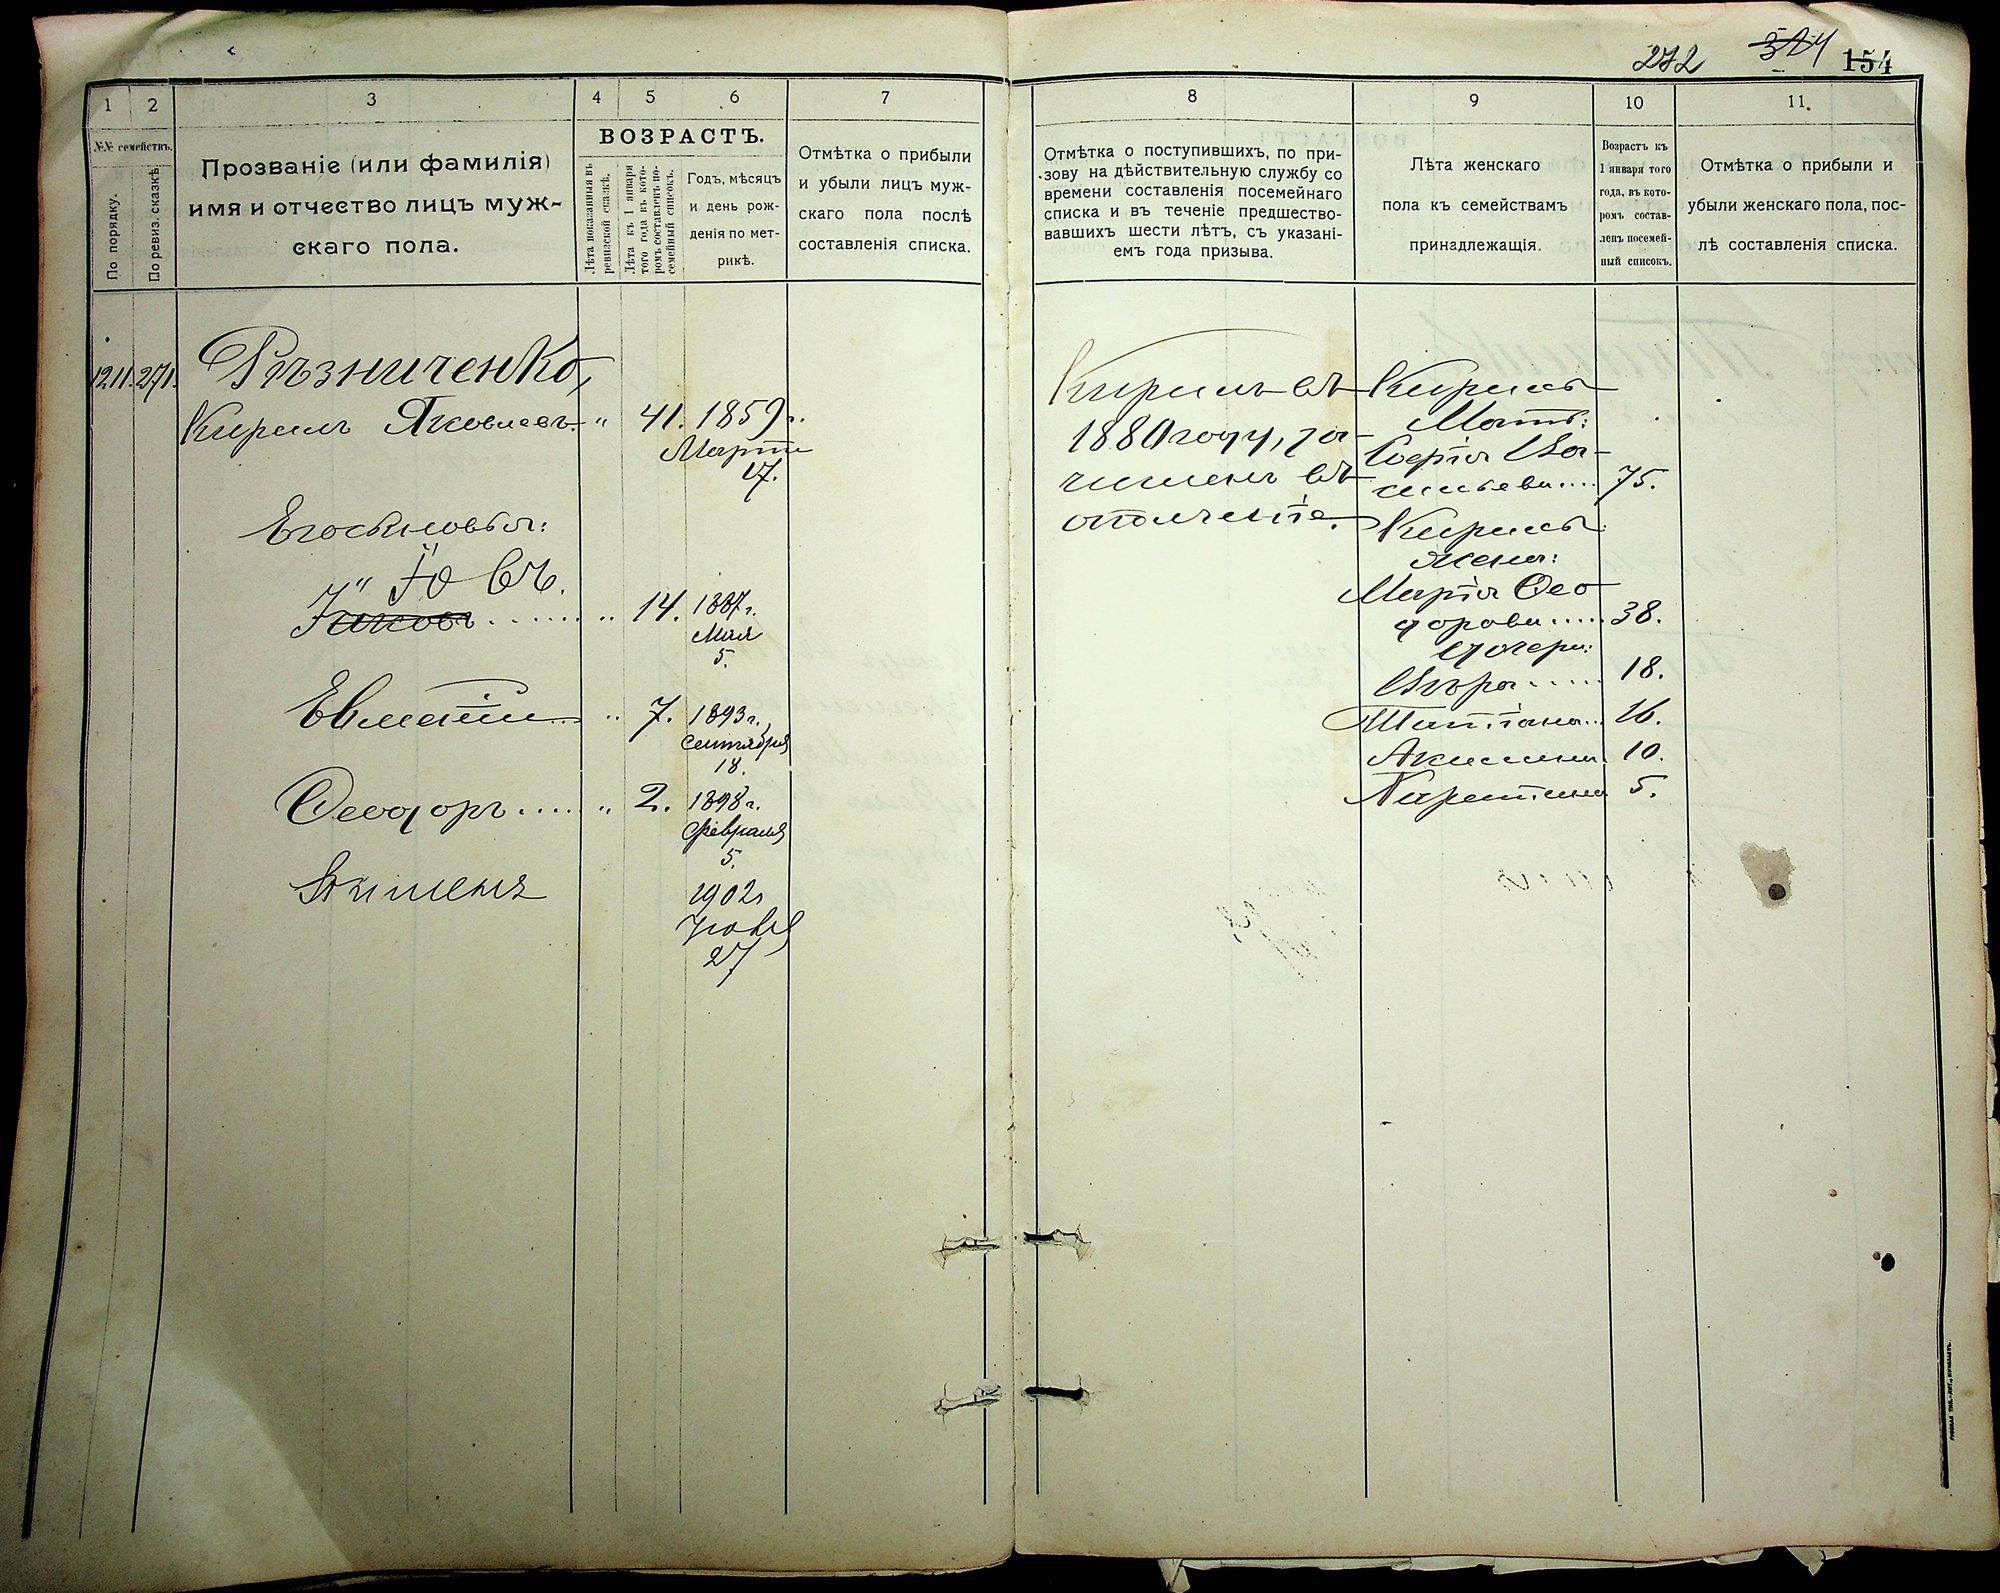 272 324 154
1 2 3 4 5 6 7
№№ семействъ.
По порядку.
По ревиз. сказкѣ.
Прозваніе (или фамилія)
имя и отчество лицъ муж-
скаго пола.
ВОЗРАСТЪ.
Лѣта показанныя въ
ревизской сказкѣ.
Лѣта къ 1 января
того года къ кото-
ромъ составленъ по-
семейный списокъ.
Годъ, мѣсяцъ
и день рож-
денія по мет-
рикѣ.
Отмѣтка о прибыли
и убыли лицъ муж-
скаго пола послѣ
составленія списка.
1211. 271. Рѣзниченко,
Кирилъ Яковлевъ " 41. 1859 г.
Мартъ
17.
Его сыновья:
Іовъ.
Яковъ ...... " 14. 1887 г.
Мая
5.
Евлатій " 7. 1893 г.
Сентября
18.
Ѳеодоръ .... " 2. 1898 г.
Февраля
5.
Пименъ 1902 г.
27
8 9 10 11.
Отмѣтка о поступившихъ, по при-
зову на дѣйствительную службу со
времени составленія посемейнаго
списка и въ теченіе предшество-
вавшихъ шести лѣтъ, съ указані-
емъ года призыва.
Лѣта женскаго
пола къ семействамъ
принадлежащія.
Возрастъ къ
1 января того
года, въ кото-
ромъ состав-
ленъ посемей-
ный списокъ.
Отмѣтка о прибыли и
убыли женскаго пола, пос-
лѣ составленія списка.
Кирилъ въ
1880 году, за-
численъ въ
ополченіе.
Кирилы
Мать:
Софія Ва-
сильева .... 75.
Кирилы
жена:
Марія Ѳео
дорова ..... 38.
дочери:
Вѣра ..... 18.
Татіана ... 16.
Акилина 10.
Харитина 5.